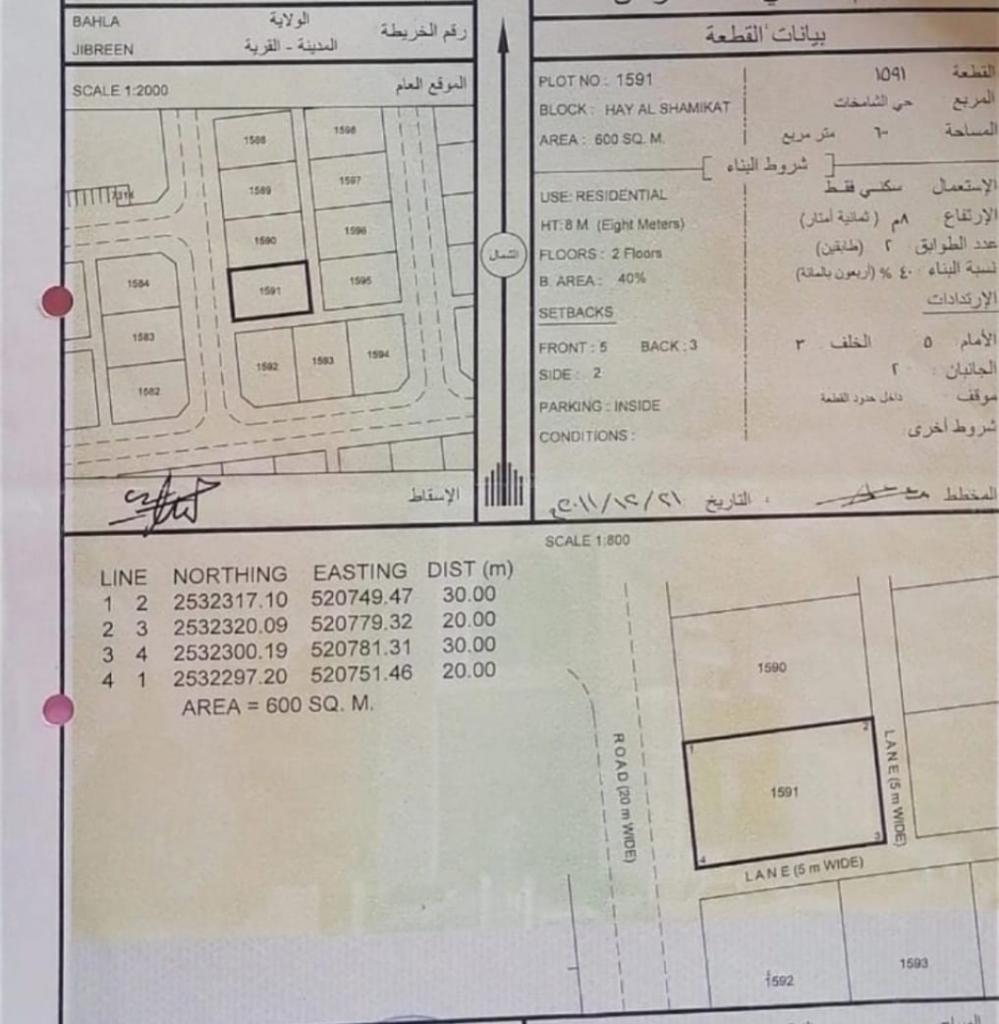 BAHLA الولاية
JIBREEN المدينة - القرية رقم الخريطة
SCALE 1:2000 الموقع العام
1588
1598
1589
1597
1590
1596
1591
1595
1584
1583
1582
1592
1593
1594
الإسقاط
الشمال
بيانات القطعة
PLOT NO : 1591 القطعة ١٥٩١
BLOCK : HAY AL SHAMIKAT المربع حي الشامخات
AREA : 600 SQ. M. المساحة ٦٠٠ متر مربع
شروط البناء
USE: RESIDENTIAL الإستعمال سكني فقط
HT: 8 M (Eight Meters) الإرتفاع ٨م (ثمانية أمتار)
FLOORS : 2 Floors عدد الطوابق ٢ (طابقين)
B. AREA : 40% نسبة البناء ٤٠ % (أربعون بالمائة)
SETBACKS الإرتدادات
FRONT : 5 BACK : 3 الأمام ٥ الخلف ٣
SIDE : 2 الجانبان : ٢
PARKING : INSIDE موقف : داخل حدود القطعة
CONDITIONS : شروط أخرى
المخطط
التاريخ : ٢١/١٢/٢٠١١م
SCALE 1:800
LINE NORTHING EASTING DIST (m)
1 2 2532317.10 520749.47 30.00
2 3 2532320.09 520779.32 20.00
3 4 2532300.19 520781.31 30.00
4 1 2532297.20 520751.46 20.00
AREA = 600 SQ. M.
1590
1
2
1591
3
4
ROAD (20 m WIDE)
LANE (5 m WIDE)
LANE (5 m WIDE)
1592
1593